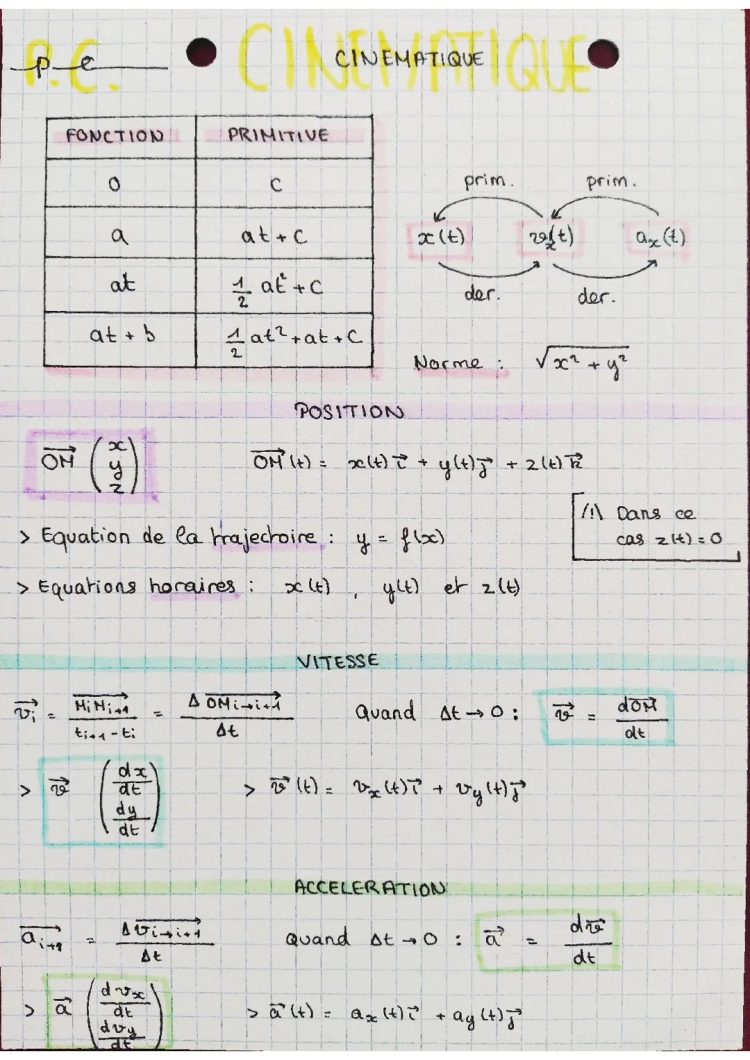 P.C. CINEMATIQUE
P C CINEMATIQUE
FONCTION PRIMITIVE
0 C
a at + C
at 1/2 at² + C
at + b 1/2 at² + at + C
prim. prim.
x(t) vx(t) ax(t)
der. der.
Norme : √x² + y²
POSITION
OM→ (x y z) OM→(t) = x(t)i→ + y(t)j→ + z(t)k→
/!\ Dans ce
cas z(t) = 0
> Equation de la trajectoire : y = f(x)
> Equations horaires : x(t) , y(t) et z(t)
VITESSE
vi→ = MiMi+1→ / ti+1 - ti = Δ OMi→i+1→ / Δt Quand Δt → 0 : v→ = dOM→ / dt
> v→ (dx/dt dy/dt) > v→(t) = vx(t)i→ + vy(t)j→
ACCELERATION
ai+1→ = Δvi→i+1→ / Δt Quand Δt → 0 : a→ = dv→ / dt
> a→ (dvx/dt dvy/dt) > a→(t) = ax(t)i→ + ay(t)j→